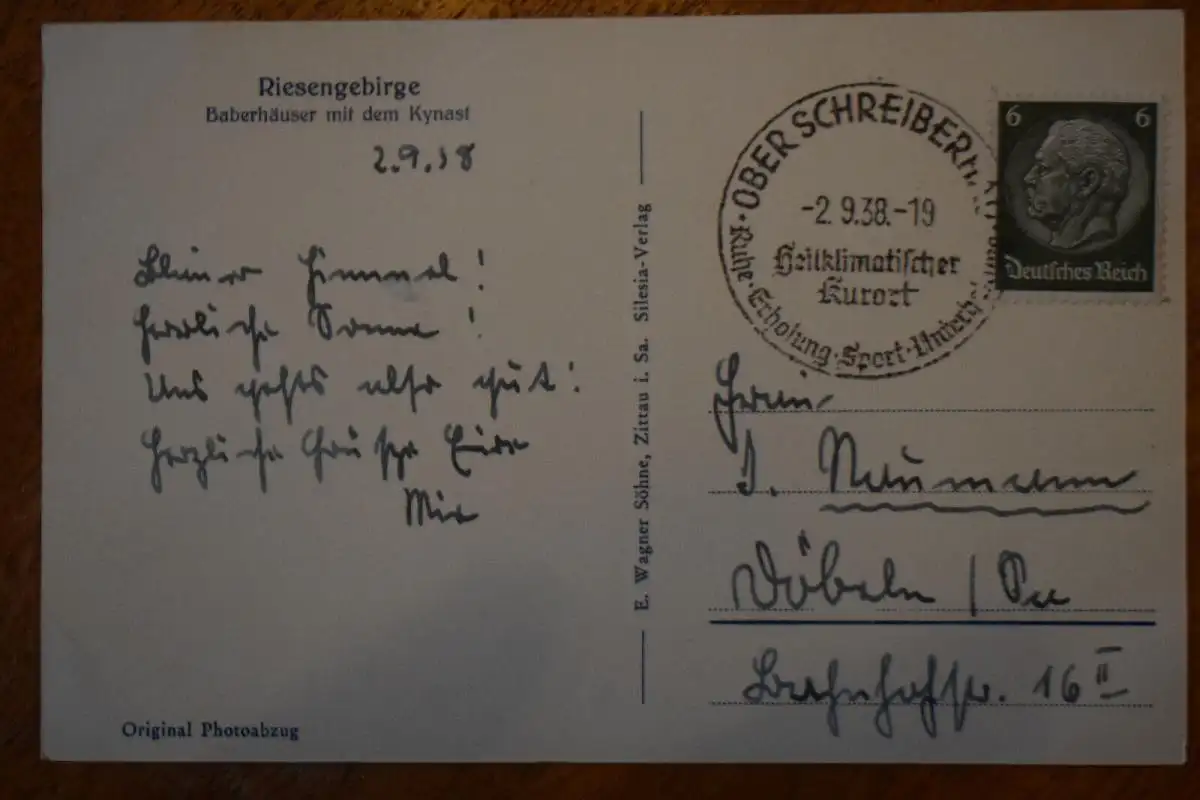 Riesengebirge
Baberhäuser mit dem Kynast
2.9.38
Blauer Himmel!
Herrliche Sonne!
Uns gehts also gut!
Herzliche Grüße Eure
Original Photoabzug
E. Wagner Söhne, Zittau i. Sa. Silesia-Verlag
OBER SCHREIBERH
-2.9.38.-19
Heilklimatischer
Kurort
Ruhe · Erholung · Sport ·
6 6
Deutsches Reich
J. Naumann
Döbeln / Sa
Bahnhofstr. 16 II